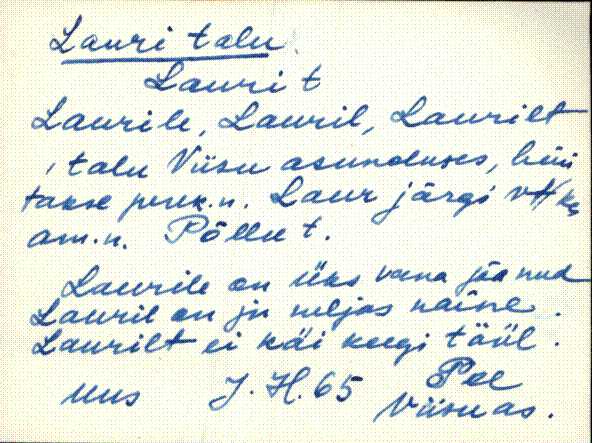 Lauri talu
Lauri t
Laurile, Lauril, Laurilt
, talu Viisu asunduses, hüü
takse perek.n. Laur järgi
am.n. Põllu t.
Laurile on üks vana jäänud
Lauril on ju neljas naine.
Laurilt ei käi keegi tööl.
uus J. H. 65 Pee
Viisu as.